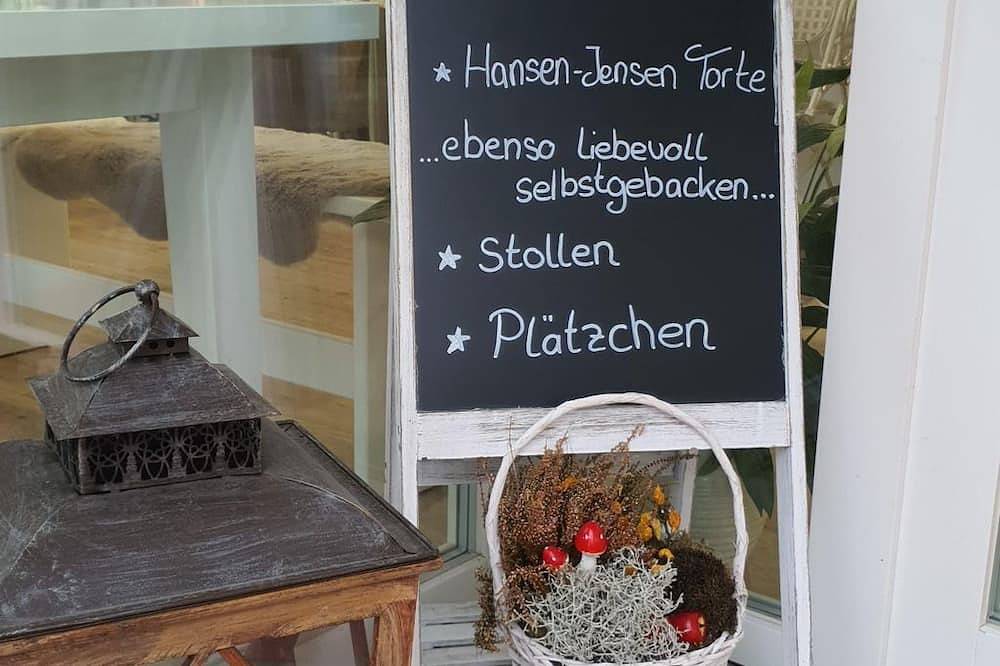 * Hansen-Jensen Torte
...ebenso liebevoll
selbstgebacken...
* Stollen
* Plätzchen